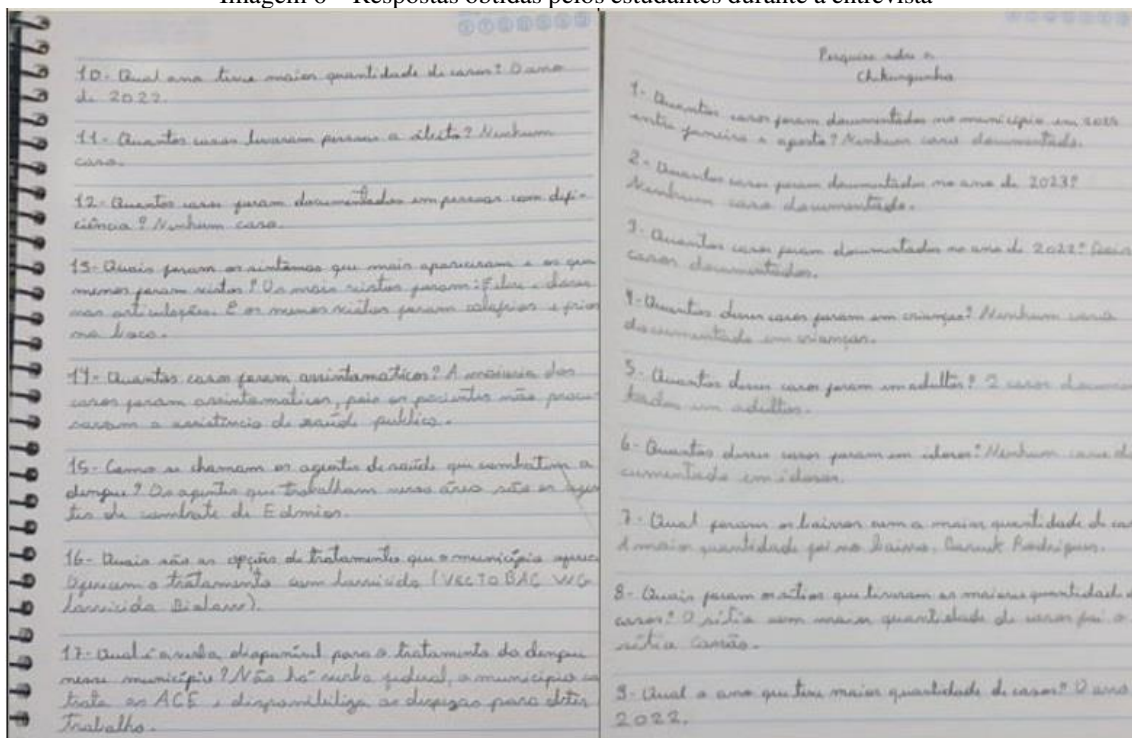 Imagem 6 – Respostas obtidas pelos estudantes durante a entrevista
10- Qual ano teve maior quantidade de casos? O ano
de 2022.
11- Quantos casos levaram pessoas a óbito? Nenhum
caso.
12- Quantos casos foram documentados em pessoas com defi-
ciência? Nenhum caso.
13- Quais foram os sintomas que mais apareceram e os que
menos foram vistos? Os mais vistos foram: Febre e dores
nas articulações. E os menos vistos foram calafrios e
na boca.
14- Quantos casos foram assintomáticos? A maioria dos
casos foram assintomáticos, pois os pacientes não procu
raram a assistência de saúde publica.
15- Como se chamam os agentes de saúde que combatem a
dengue? Os agentes que trabalham nessa área são os agen
tes de combate de Edmias.
16- Quais são as opções de tratamento que o município oferec
Oferecem o tratamento com larvicida (VECTOBAC WG
larvicida
17- Qual é a verba disponível para o tratamento da dengue
nesse município? Não há verba federal, o município
trata os ACE e disponibiliza as para
trabalho.
Pesquisa sobre a
Chikungunha
1- Quantos casos foram documentados no município em
entre janeiro e agosto? Nenhum caso documentado.
2- Quantos casos foram documentados no ano de 2023?
Nenhum caso documentado.
3- Quantos casos foram documentados no ano de 2022? Dois
casos documentados.
4- Quantos desses casos foram em crianças? Nenhum caso
documentado em crianças.
5- Quantos desses casos foram em adultos? 2 casos documen
tados em adultos.
6- Quantos desses casos foram em idosos? Nenhum caso do
cumentado em idosos.
7- Qual foram os bairros com a maior quantidade de cas
A maior quantidade foi no bairro, Rodrigues.
8- Quais foram os sítios que tiveram as maiores quantidade d
casos? O sítio com maior quantidade de casos foi o
sítio
9- Qual o ano que teve maior quantidade de casos? O ano
2022.